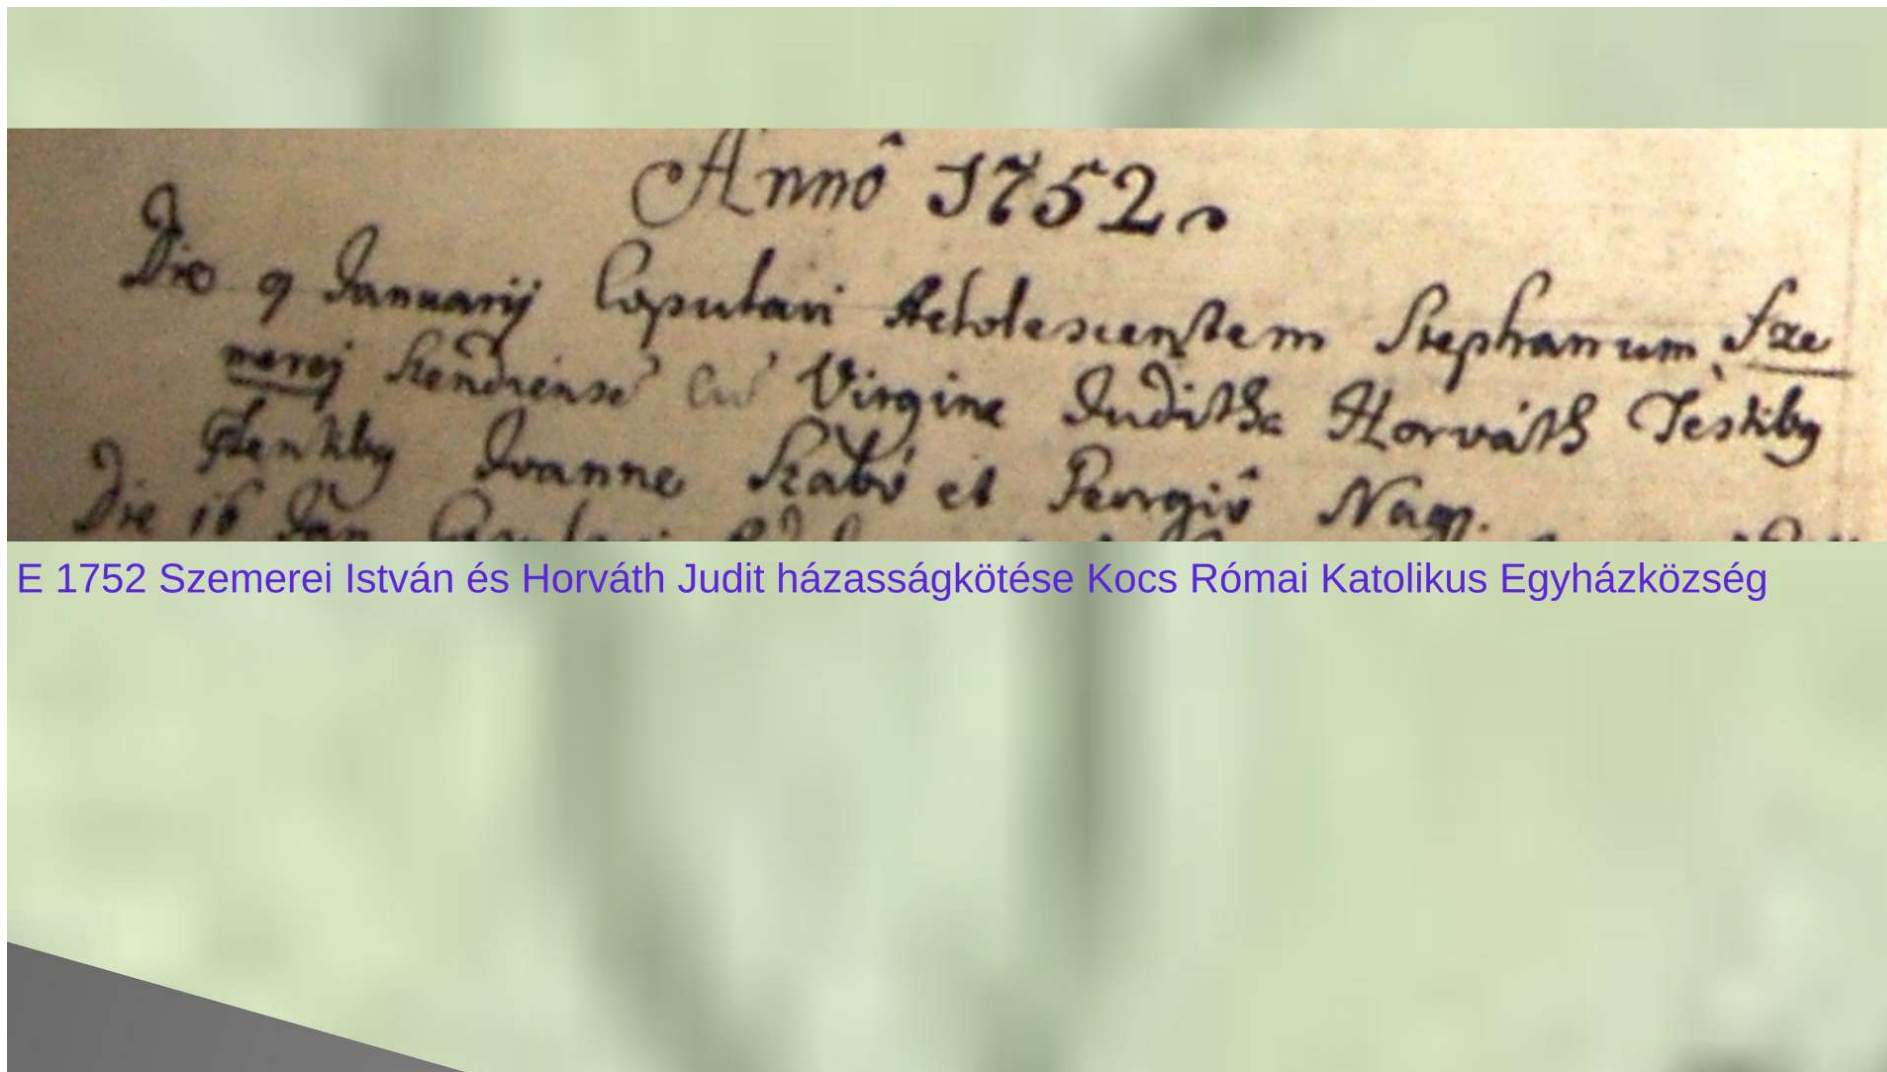 Annô 1752.
Die 9 Januarij Copulavi Adolescentem Stephanum Sze
merej cu Virgine Juditha Horváth Testiby
Joanne Szabó et Georgiô Nagy.
Die 16 Jan Copulavi
E 1752 Szemerei István és Horváth Judit házasságkötése Kocs Római Katolikus Egyházközség